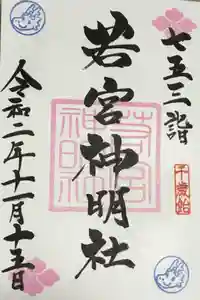 七五三詣
千歳飴
若宮神明社
令和二年十一月十五日